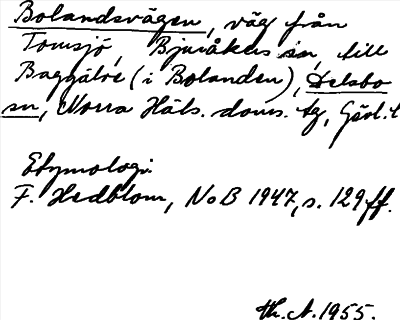 Bolandsvägen, väg från
Tomsjö, Bjuråkers sn, till
Baggätre (i Bolanden), Delsbo
sn, Norra Häls. doms. tg, Gävl. l
Etymologi
F. Hedblom, NoB 1947, s. 129 ff.
Th. A. 1955.